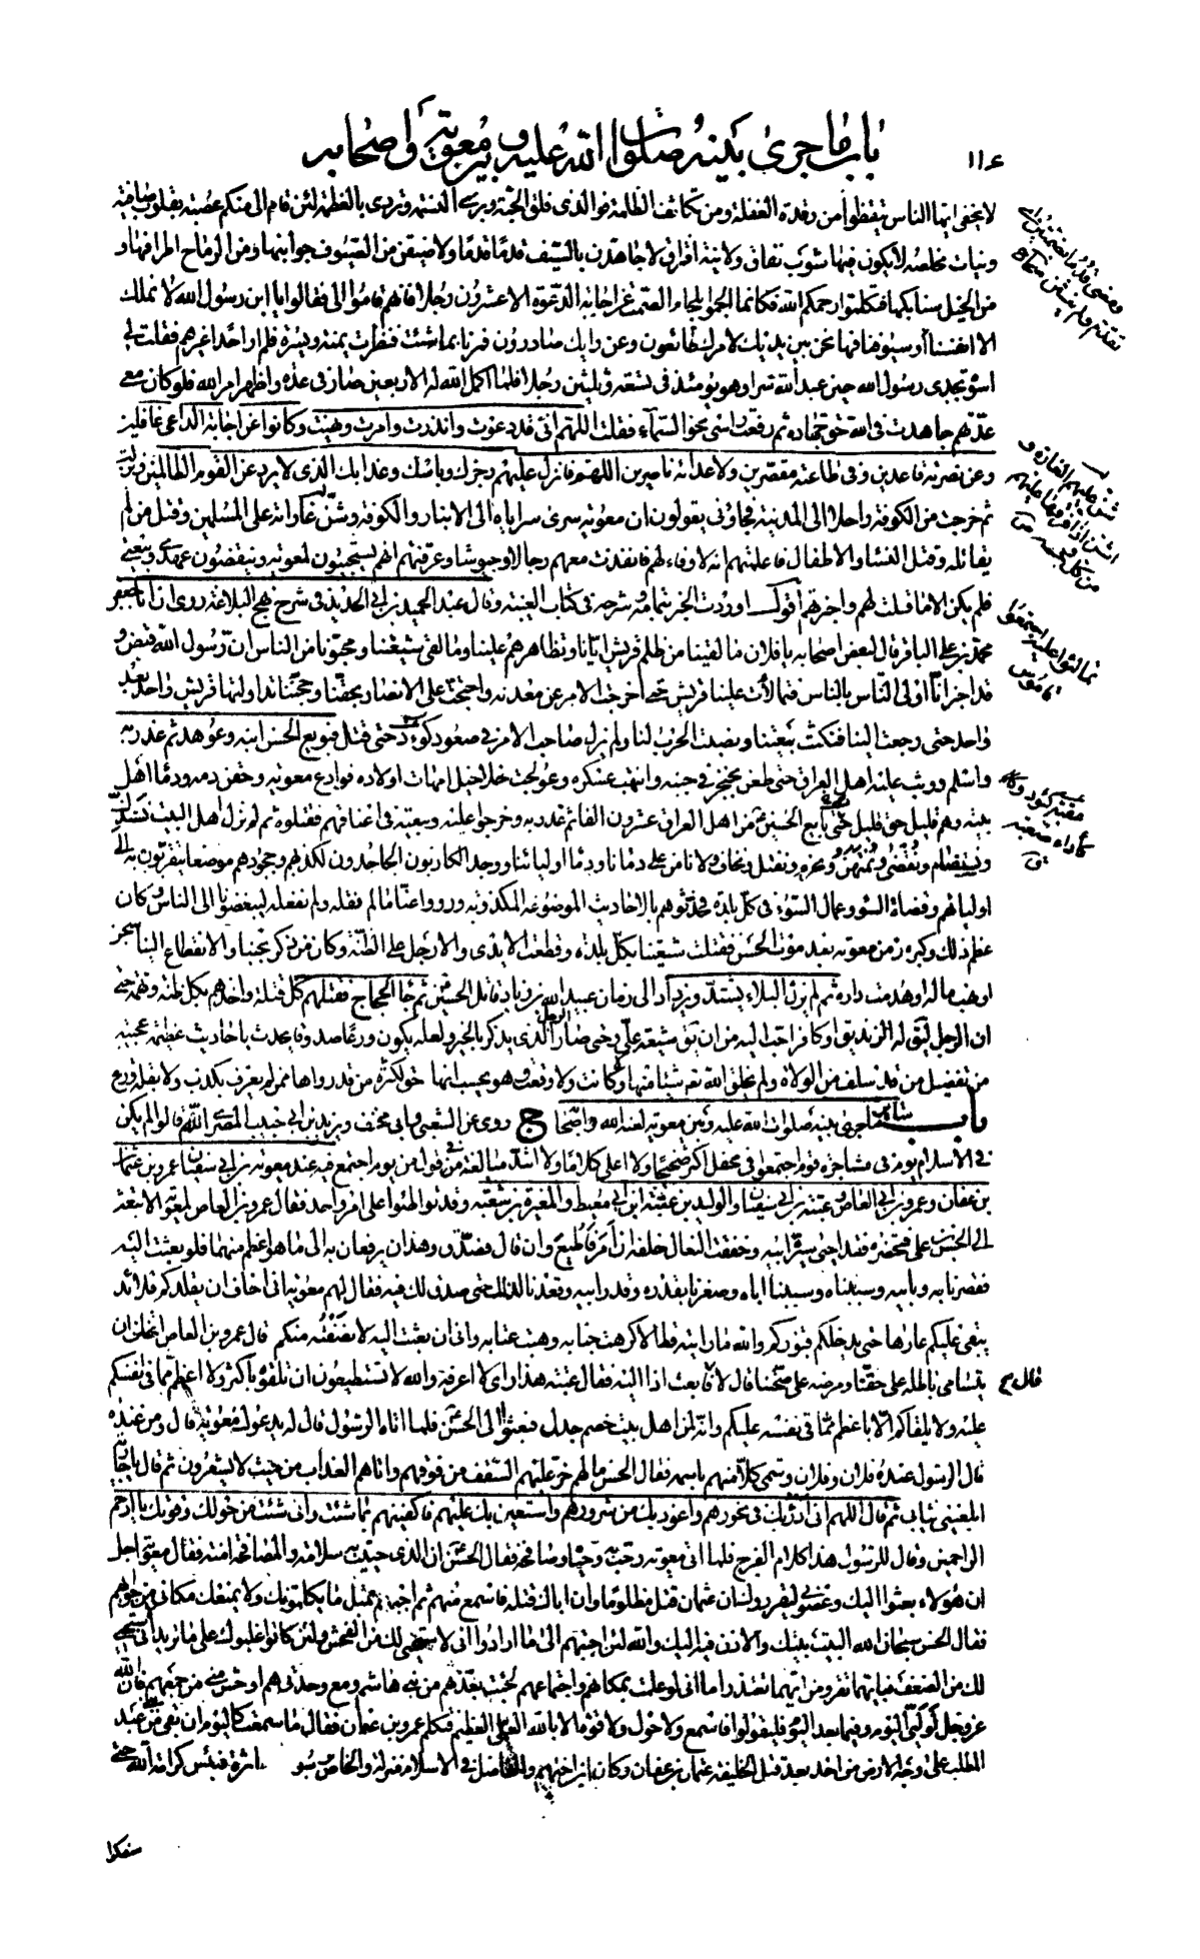 باب ما جرى بينه صلوات الله عليه وبين معوية واصحابه
لا يخفى ايها الناس تيقظوا من رقدة الغفلة ومن تكاثف الظلمة فوالذي فلق الحبة وبرء النسمة وتردى بالعظمة لئن قام الى منكم عصبة بقلوب صافية
ونيات مخلصة لا يكون فيها شوب نفاق ولا نية افتراق لاجاهدن بالسيف قدما قدما ولاضيقن من السيوف جوانبها ومن الرماح اطرافها و
من الخيل سنابكها فتكلموا رحمكم الله فكانما الجموا بلجام الصمت عن اجابة الدعوة الا عشرون رجلا فانهم قاموا الى فقالوا يا ابن رسول الله لا نملك
الا انفسنا وسيوفنا فها نحن بين يديك لامرك طائعون وعن رايك صادرون فمرنا بما شئت فنظرت يمنة ويسرة فلم ار احدا غيرهم فقلت لي
اسوة بجدي رسول الله حين عبد الله سرا وهو يومئذ في تسعة وثلثين رجلا فلما اكمل الله له الاربعين صار في عدة واظهر امر الله فلو كان معي
عدتهم جاهدت في الله حق جهاده ثم رفعت راسي نحو السماء فقلت اللهم اني قد دعوت وانذرت وامرت ونهيت وكانوا عن اجابة الداعي غافلين
وعن نصرته قاعدين وفي طاعته مقصرين ولاعدائه ناصرين اللهم فانزل عليهم رجزك وباسك وعذابك الذي لا يرد عن القوم الظالمين ونزلت
ثم خرجت من الكوفة راحلا الى المدينة فجاؤني يقولون ان معوية سرى سراياه الى الانبار والكوفة وشن غاراته على المسلمين وقتل من لم
يقاتله وقتل النساء والاطفال فاعلمتهم انه لا وفاء لهم فانفذت معهم رجالا وجيوشا وعرفتهم انهم يستجيبون لمعوية وينقضون عهدي وبيعتي
فلم يكن الا ما قلت لهم واخبرتهم اقول اوردت الخبر بتمامه وشرحه في كتاب الغيبة وقال عبد الحميد بن ابي الحديد في شرح نهج البلاغة روي ان ابا جعفر
محمد بن علي الباقر قال لبعض اصحابه يا فلان ما لقينا من ظلم قريش ايانا وتظاهرهم علينا وما لقي شيعتنا ومحبونا من الناس ان رسول الله قبض و
قد اخبر انا اولى الناس بالناس فتمالأت علينا قريش حتى اخرجت الامر عن معدنه واحتجت على الانصار بحقنا وحجتنا تداولتها قريش واحد بعد
واحد حتى رجعت الينا فنكثت بيعتنا ونصبت الحرب لنا ولم يزل صاحب الامر في صعود كؤد حتى قتل فبويع الحسن ابنه وعوهد ثم غدر به
واسلم ووثب عليه اهل العراق حتى طعن بخنجر في جنبه وانتهب عسكره وعولجت خلاخيل امهات اولاده فوادع معوية وحقن دمه ودماء اهل
بيته وهم قليل حق قليل ثم بايع الحسين من اهل العراق عشرون الفا ثم غدر به وخرجوا عليه وبيعته في اعناقهم فقتلوه ثم لم نزل اهل البيت نستذل
ونستضام ونقصى ونمتهن ونحرم ونقتل ونخاف ولا نامن على دمائنا ودماء اوليائنا ووجد الكاذبون الجاحدون لكذبهم وجحودهم موضعا يتقربون به الى
اوليائهم وقضاة السوء وعمال السوء في كل بلدة فحدثوهم بالاحاديث الموضوعة المكذوبة ورووا عنا ما لم نقله ولم نفعله ليبغضونا الى الناس وكان
عظم ذلك وكبره زمن معوية بعد موت الحسن فقتلت شيعتنا بكل بلدة وقطعت الايدي والارجل على الظنة وكان من يذكر بحبنا والانقطاع الينا سجن
او نهب ماله او هدمت داره ثم لم يزل البلاء يشتد ويزداد الى زمان عبيد الله بن زياد قاتل الحسين ثم جاء الحجاج فقتلهم كل قتلة واخذهم بكل ظنة وتهمة حتى
ان الرجل ليقال له زنديق او كافر احب اليه من ان يقال شيعة علي وحتى صار الرجل الذي يذكر بالخير ولعله يكون ورعا صدوقا يحدث باحاديث عظيمة عجيبة
من تفضيل من قد سلف من الولاة ولم يخلق الله تعالى شيئا منها ولا كانت ولا وقعت وهو يحسب انها حق لكثرة من قد رواها ممن لم يعرف بكذب ولا بقلة ورع
باب سائر ما جرى بينه صلوات الله عليه وبين معوية لعنه الله واصحابه ج روي عن الشعبي وابي مخنف ويزيد بن ابي حبيب المصري انهم قالوا لم يكن
في الاسلام يوم في مشاجرة قوم اجتمعوا في محفل اكثر ضجيجا ولا اعلى كلاما ولا اشد مبالغة في قول من يوم اجتمع فيه عند معوية بن ابي سفيان عمرو بن عثمان
بن عفان وعمرو بن العاص وعتبة بن ابي سفيان والوليد بن عقبة ابن ابي معيط والمغيرة بن شعبة وقد تواطئوا على امر واحد فقال عمرو بن العاص لمعوية الا تبعث
الى الحسن بن علي فتحضره فقد احيى سيرة ابيه وخفقت النعال خلفه ان امر فاطيع وان قال فصدق وهذان يرفعان به الى ما هو اعظم منهما فلو بعثت اليه
فقصرنا به وبابيه وسببناه وسببنا اباه وصغرنا بقدره وقدر ابيه وقعدنا لذلك حتى صدق لك فيه فقال لهم معوية اني اخاف ان يقلدكم قلائد
يبقى عليكم عارها حتى يدخلكم قبوركم والله ما رايته قط الا كرهت جنابه وهبت عتابه واني ان بعثت اليه لانصفنه منكم قال عمرو بن العاص اتخاف ان
يتسامى باطله على حقنا ومرضه على صحتنا قال لا قال فابعث اذا اليه فقال عتبة هذا راي لا اعرفه والله لا تستطيعون ان تلقوه باكثر ولا اعظم مما في انفسكم
عليه ولا يلقاكم الا باعظم مما في نفسه عليكم وانه لمن اهل بيت خصم جدل فبعثوا الى الحسن فلما اتاه الرسول قال له يدعوك معوية قال ومن عنده
قال الرسول عنده فلان وفلان وسمى كلا منهم باسمه فقال الحسن ما لهم خر عليهم السقف من فوقهم واتاهم العذاب من حيث لا يشعرون ثم قال يا جارية
ابلغيني ثيابي ثم قال اللهم اني ادرأ بك في نحورهم واعوذ بك من شرورهم واستعين بك عليهم فاكفنيهم بما شئت واني شئت من حولك وقوتك يا ارحم
الراحمين وقال للرسول هذا كلام الفرج فلما اتى معوية رحب به وحياه وصافحه فقال الحسن ان الذي حييت به سلامة والمصافحة امنة فقال معوية اجل
ان هؤلاء بعثوا اليك وعصوني ليقرروك ان عثمان قتل مظلوما وان اباك قتله فاسمع منهم ثم اجبهم بمثل ما يكلمونك ولا يمنعك مكاني من جوابهم
فقال الحسن سبحان الله البيت بيتك والاذن فيه اليك والله لئن اجبتهم الى ما ارادوا اني لاستحيي لك من الفحش ولئن كانوا غلبوك على ما تريد اني لاستحيي
لك من الضعف فبايهما تقر ومن ايهما تعتذر اما اني لو علمت بمكانهم واجتماعهم لجئت بعدتهم من بني هاشم ومع وحدتي هم اوحش مني من جمعهم فان الله
عز وجل لوليي اليوم وفيما بعد اليوم فليقولوا فاسمع ولا حول ولا قوة الا بالله العلي العظيم فتكلم عمرو بن عثمان فقال ما سمعت كاليوم ان بقي من بني عبد
المطلب على وجه الارض من احد بعد قتل الخليفة عثمان بن عفان وكان ابن اختهم والفاضل في الاسلام منزلة والخاص برسو اثرة فبئس كرامة الله حتى
سفكوا